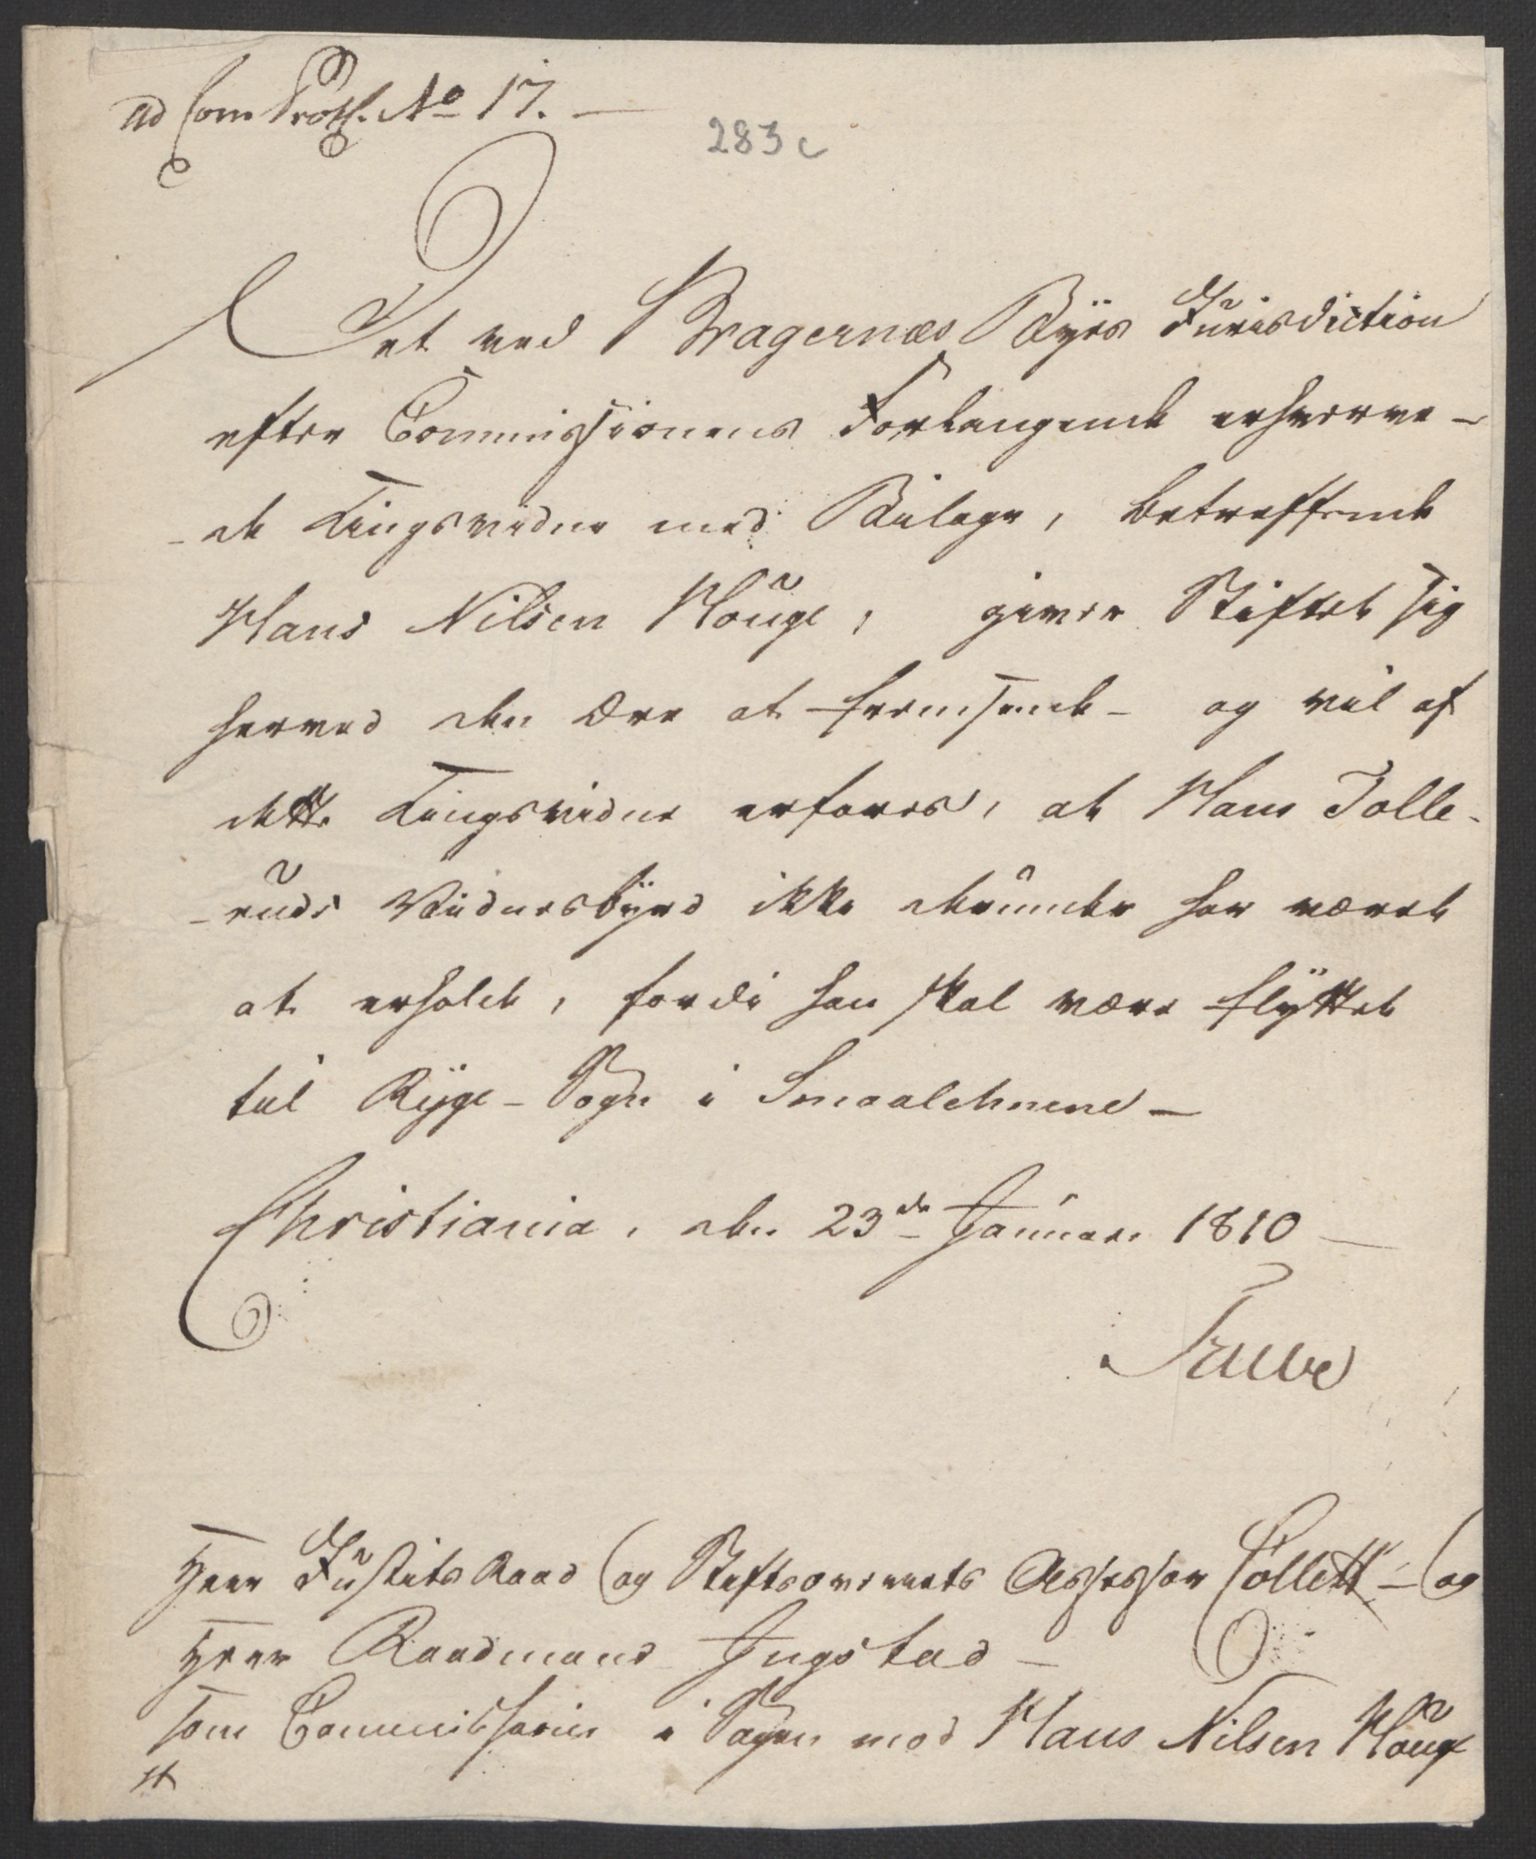 ad Com. Prot. No 17. —
283 c
Det ved Bragernæs Byes Jurisdiction
efter Commissionens Forlangende erhverve-
-de Tingsvidne med Bilage, betreffende
Hans Nilsen Houge, giver Stiftet sig
herved den Ære at fremsende - og vil af
dette Tingsvidne erfares, at Hans Tolle-
-ruds Vidnesbyrd ikke derunder har været
at erholde, fordi han skal være flyttet
til Rygge-Sogn i Smaalehnene —
Christiania, den 23de Januari 1810 —
Herr Justitsraad og Stiftsoverrets Assessor Collett — og
Herr Raadmand Ingstad —
som Commissarier i Sagen mod Hans Nilsen Houge